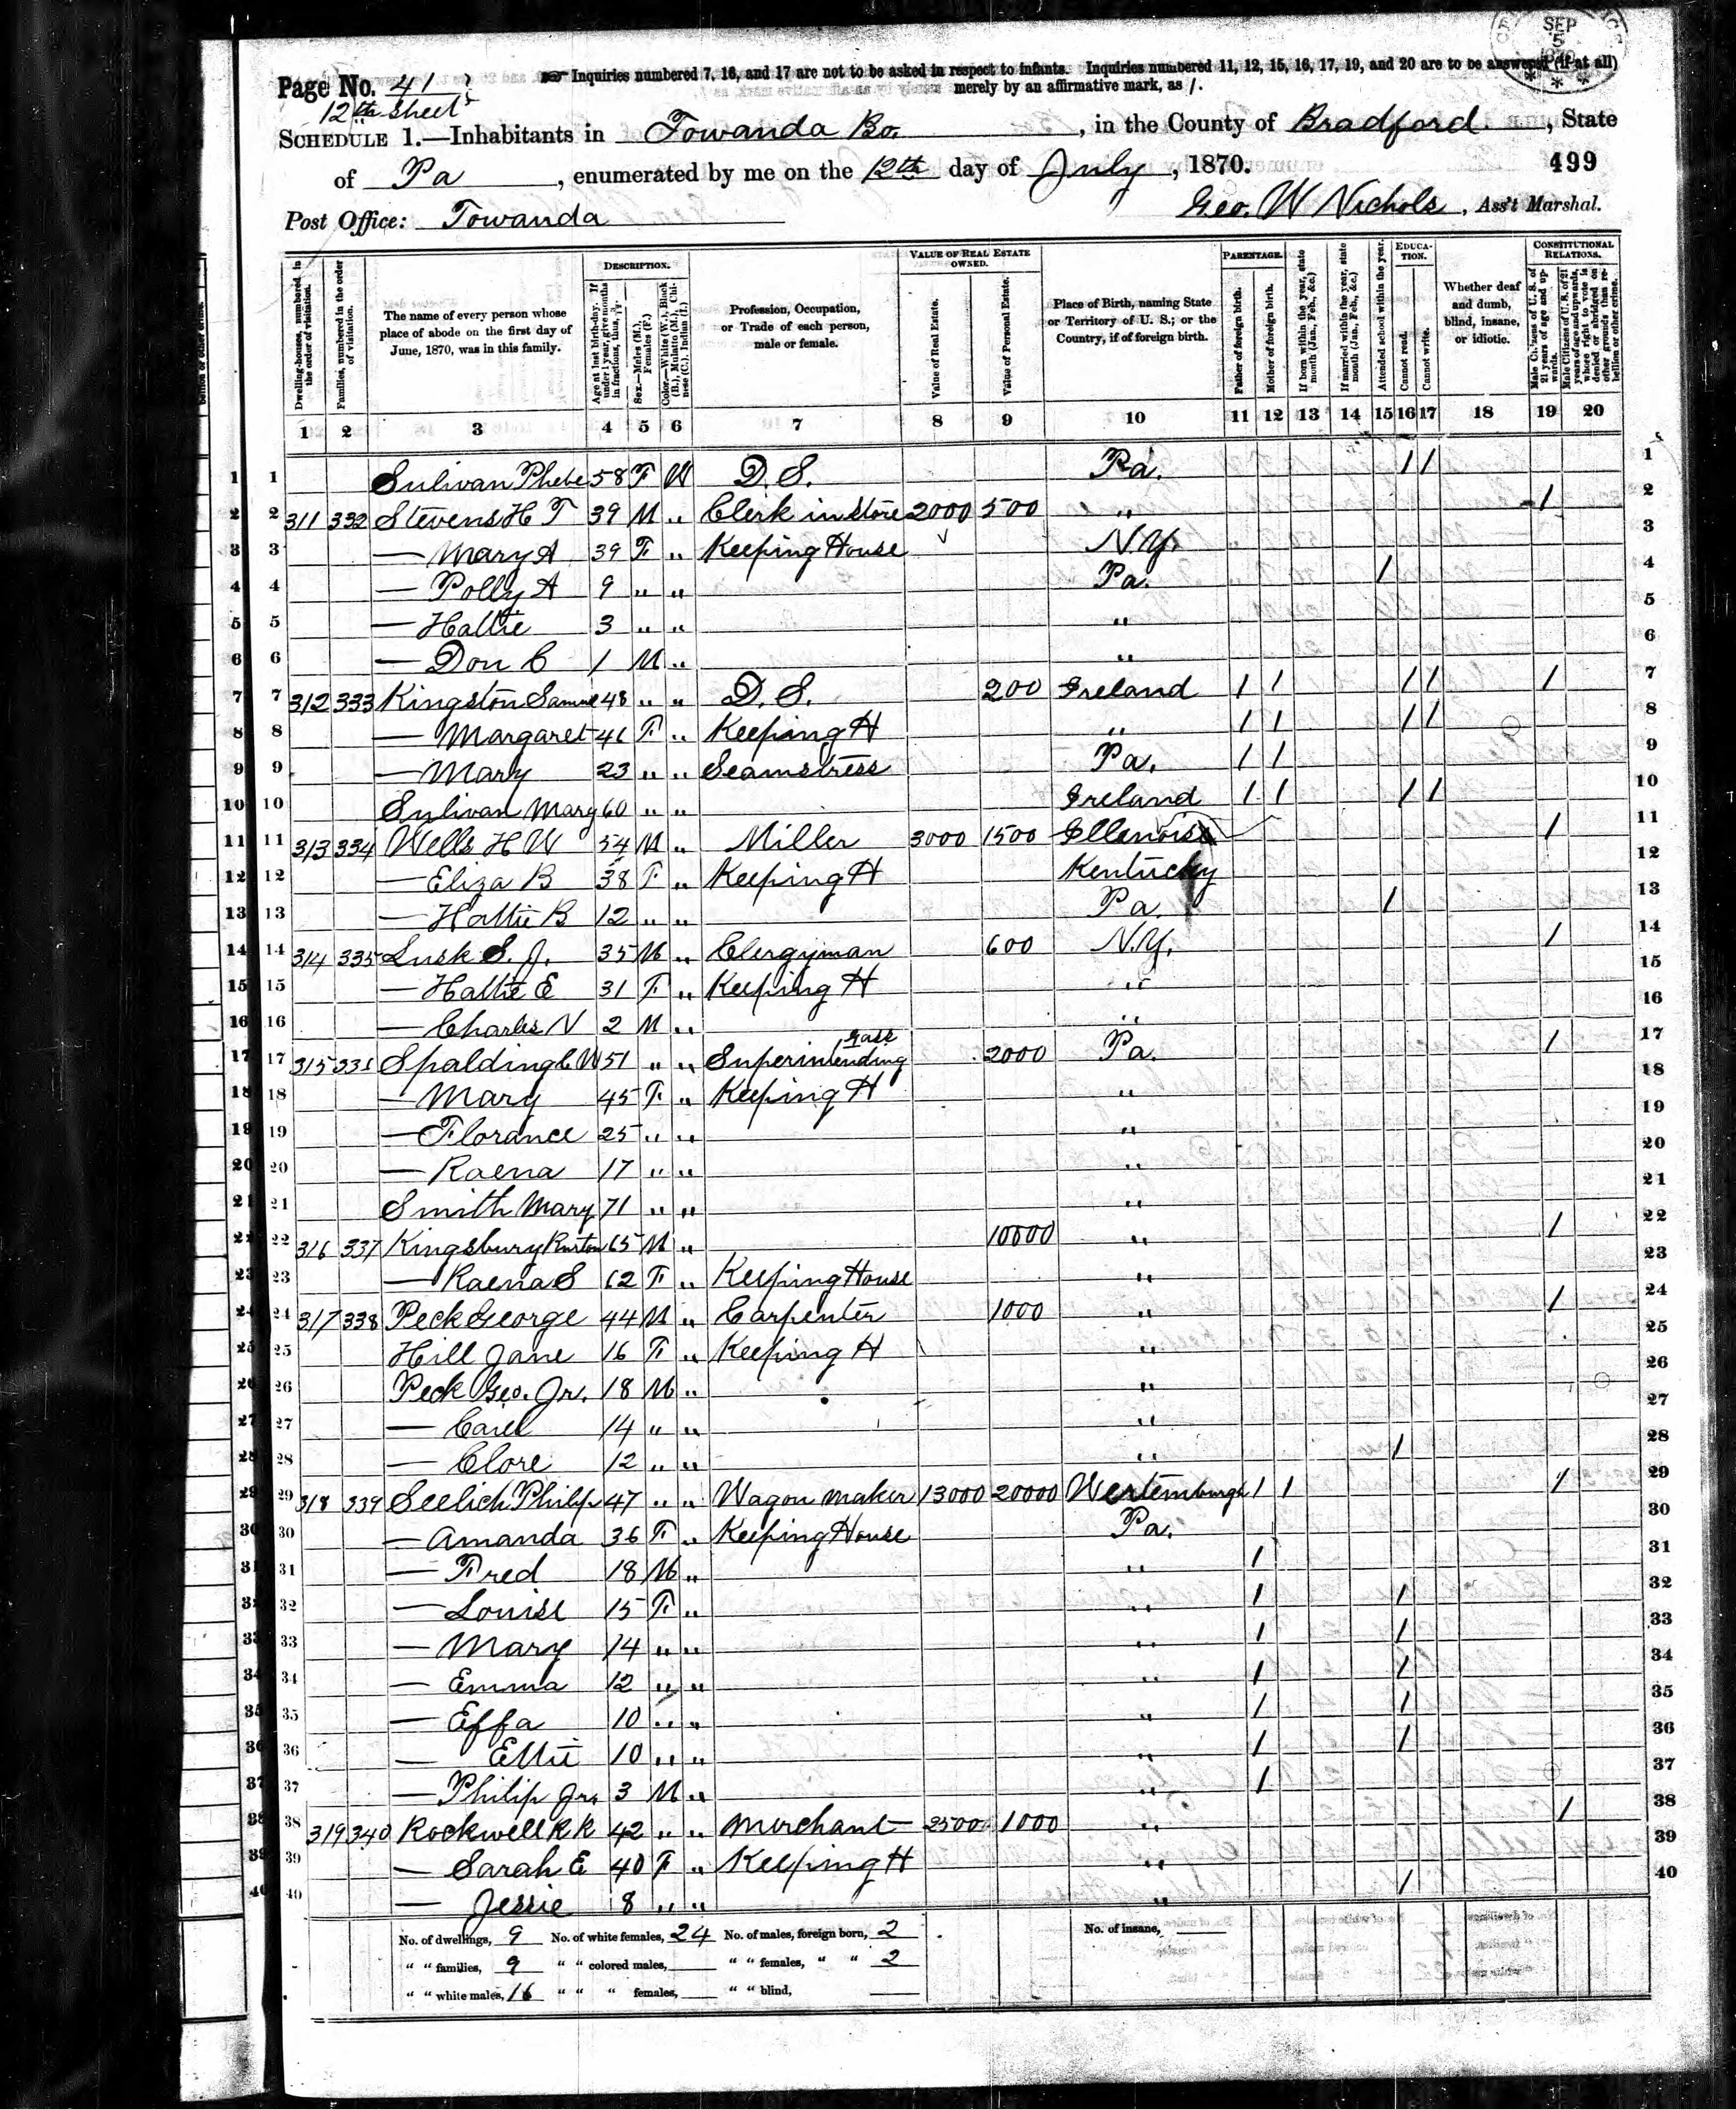 SEP
5
Page No. 41
Inquiries numbered 7, 16, and 17 are not to be asked in respect to infants. Inquiries numbered 11, 12, 15, 16, 17, 19, and 20 are to be answered (if at all)
merely by an affirmative mark, as /.
12th sheet
SCHEDULE 1.—Inhabitants in Towanda Bo. , in the County of Bradford , State
of Pa , enumerated by me on the 12th day of July , 1870.
499
Post Office: Towanda
Geo. W Nichols , Ass't Marshal.
Dwelling-houses, numbered in the order of visitation.
Families, numbered in the order of visitation.
The name of every person whose place of abode on the first day of June, 1870, was in this family.
DESCRIPTION.
Age at last birth-day. If under 1 year, give months in fractions, thus, 3/12.
Sex.—Males (M.), Females (F.)
Color.—White (W.), Black (B.), Mulatto (M.), Chinese (C.), Indian (I.)
Profession, Occupation, or Trade of each person, male or female.
VALUE OF REAL ESTATE OWNED.
Value of Real Estate.
Value of Personal Estate.
Place of Birth, naming State or Territory of U. S.; or the Country, if of foreign birth.
PARENTAGE.
Father of foreign birth.
Mother of foreign birth.
If born within the year, state month (Jan., Feb., &c.)
If married within the year, state month (Jan., Feb., &c.)
Attended school within the year.
EDUCATION.
Cannot read.
Cannot write.
Whether deaf and dumb, blind, insane, or idiotic.
CONSTITUTIONAL RELATIONS.
Male Citizens of U. S. of 21 years of age and upwards.
Male Citizens of U. S. of 21 years of age and upwards, whose right to vote is denied or abridged on other grounds than rebellion or other crime.
1 2 3 4 5 6 7 8 9 10 11 12 13 14 15 16 17 18 19 20
1 1 Sulivan Phebe 58 F W D. S. Pa. / / 1
2 2 311 332 Stevens H T 39 M " Clerk in Store 2000 500 " / 2
3 3 — Mary A 39 F " Keeping House N.Y. 3
4 4 — Polly A 9 " " Pa. / 4
5 5 — Hattie 3 " " " 5
6 6 — Don C 1 M " " 6
7 7 312 333 Kingston Samuel 48 " " D. S. 200 Ireland / / / / / 7
8 8 — Margaret 46 F " Keeping H " / / / / 8
9 9 — Mary 23 " " Seamstress Pa. / / 9
10 10 Sulivan Mary 60 " " Ireland / / / / 10
11 11 313 334 Wells H W 54 M " Miller 3000 1500 Illenois / 11
12 12 — Eliza B 38 F " Keeping H Kentucky 12
13 13 — Hattie B 12 " " Pa. / 13
14 14 314 335 Lusk S. J. 35 M " Clergyman 600 N.Y. / 14
15 15 — Hattie E 31 F " Keeping H " 15
16 16 — Charles N 2 M " " 16
17 17 315 336 Spalding C W 51 " " Superintending Gass 2000 Pa. / 17
18 18 — Mary 45 F " Keeping H " 18
19 19 — Florance 25 " " " 19
20 20 — Raena 17 " " " 20
21 21 Smith Mary 71 " " " 21
22 22 316 337 Kingsbury Burton 65 M " 10000 " / 22
23 23 — Raena S 62 F " Keeping House " 23
24 24 317 338 Peck George 44 M " Carpenter 1000 " / 24
25 25 Hill Jane 16 F " Keeping H " 25
26 26 Peck Geo. Jr. 18 M " " 26
27 27 — Carel 14 " " " 27
28 28 — Clore 12 " " " / 28
29 29 318 339 Seelich Philip 47 " " Wagon maker 13000 20000 Wertemburgh / / / 29
30 30 — Amanda 36 F " Keeping House Pa. 30
31 31 — Fred 18 M " " / 31
32 32 — Louise 15 F " " / / 32
33 33 — Mary 14 " " " / / 33
34 34 — Emma 12 " " " / / 34
35 35 — Effa 10 " " " / / 35
36 36 — Ettie 10 " " " / / 36
37 37 — Philip Jr. 3 M " " / 37
38 38 319 340 Rockwell R K 42 " " Merchant 2500 1000 " / 38
39 39 — Sarah E 40 F " Keeping H " 39
40 40 — Jessie 8 " " " / 40
No. of dwellings, 9 No. of white females, 24 No. of males, foreign born, 2 No. of insane,
" " families, 9 " " colored males, " " females, " " 2
" " white males, 16 " " " females, " " blind,